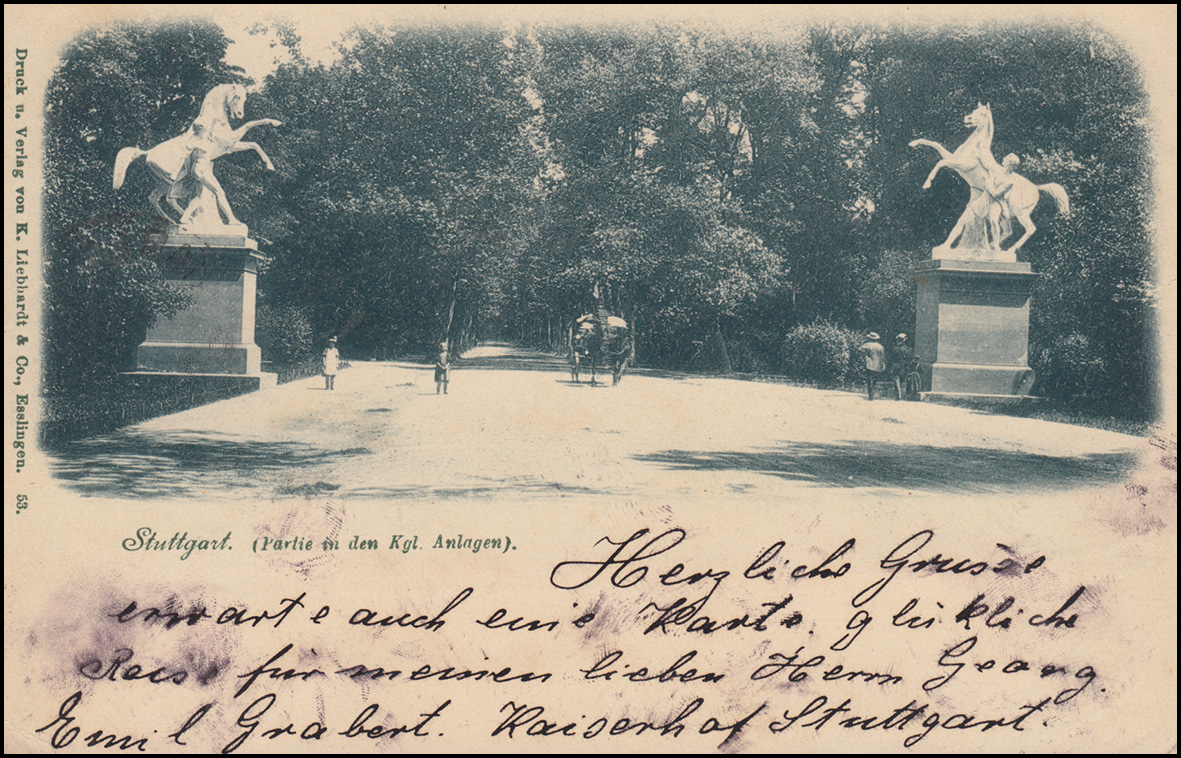 Druck u. Verlag von K. Liebhardt & Co., Esslingen. 53.
Stuttgart. (Partie in den Kgl. Anlagen).
Herzliche Grusse
erwarte auch eine Karte, glükliche
Reise für meinen lieben Herrn Georg.
Emil Grabert. Kaiserhof Stuttgart.